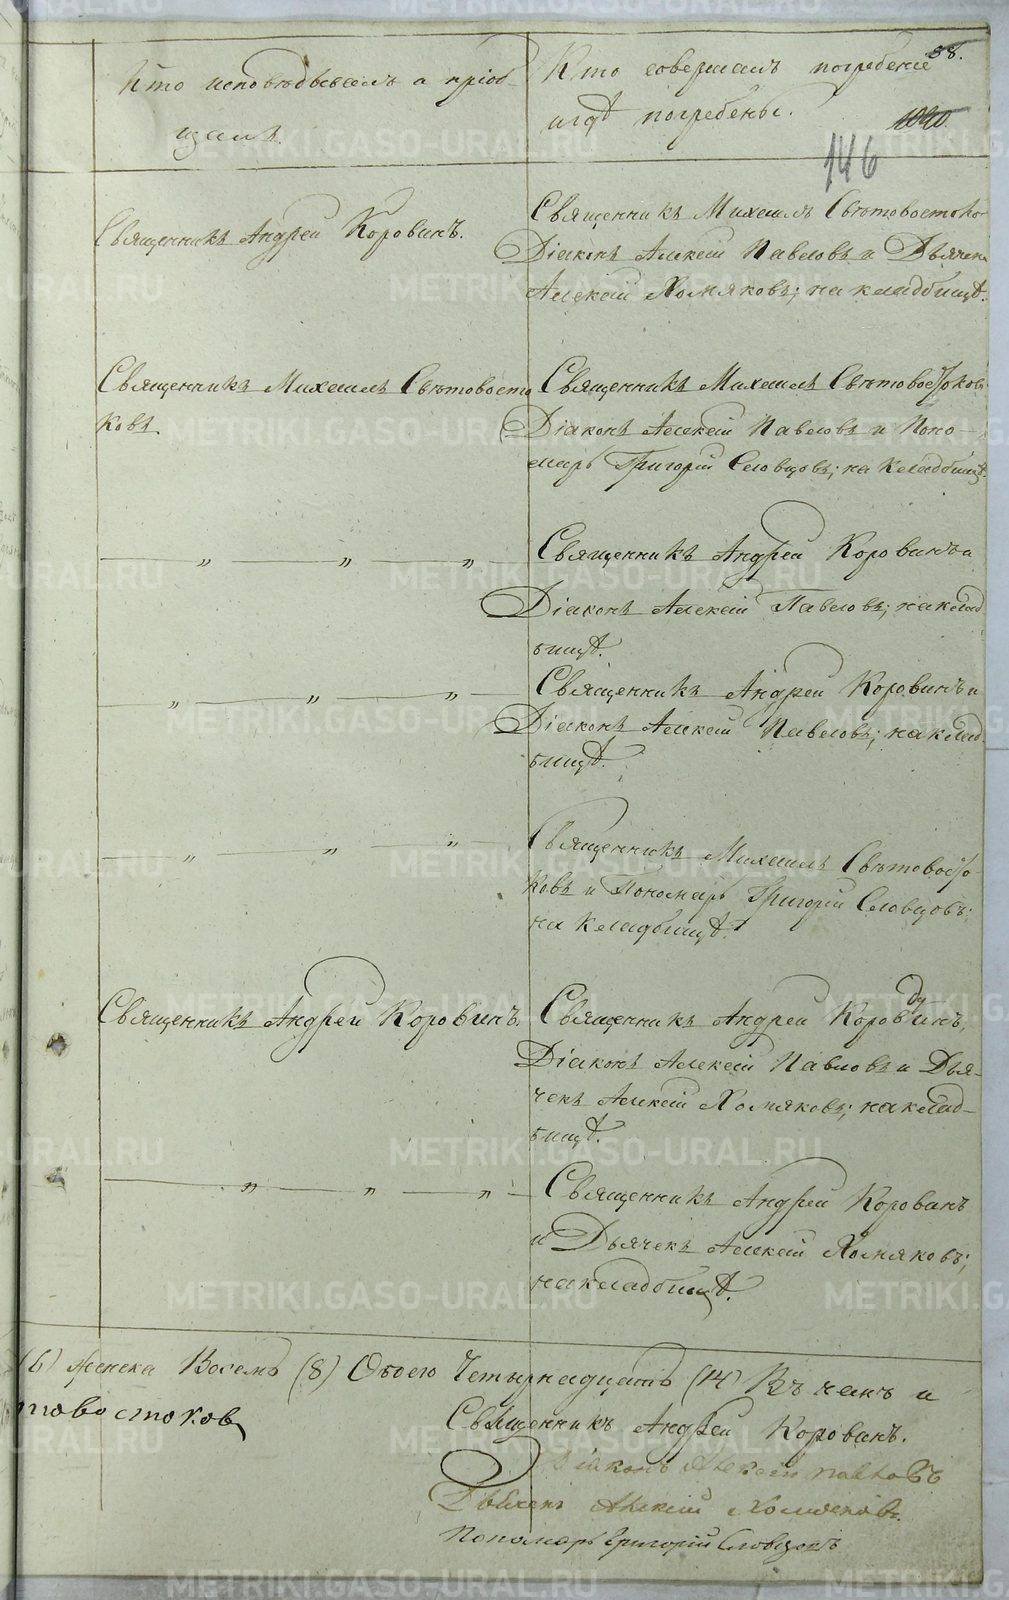 58.
Кто исповѣдывалъ и пріоб-
щалъ.
Кто совершалъ погребеніе
и гдѣ погребены.
146
Священникъ Андрей Коровинъ.
Священникъ Михаилъ Свѣтовостоков
Діаконъ Алексій Павловъ и Дьячекъ
Алексій Хомяковъ; на кладбищѣ.
Священникъ Михаилъ Свѣтовосто
ковъ.
Священникъ Михаилъ Свѣтовостоковъ
Діаконъ Алексій Павловъ и Поно-
марь Григорій Словцовъ; на кладбищѣ.
— „ — „ — „ —
Священникъ Андрей Коровинъ и
Діаконъ Алексій Павловъ; на клад
бищѣ.
— „ — „ — „ —
Священникъ Андрей Коровинъ и
Діаконъ Алексій Павловъ; на клад
бищѣ.
— „ — „ — „ —
Священникъ Михаилъ Свѣтовосто-
ковъ и Пономарь Григорій Словцовъ;
на кладбищѣ.
Священникъ Андрей Коровинъ.
Священникъ Андрей Коровинъ,
Діаконъ Алексій Павловъ и Дья-
чекъ Алексій Хомяковъ; на клад-
бищѣ.
— „ — „ — „ —
Священникъ Андрей Коровинъ
и Дьячекъ Алексій Хомяковъ;
на кладбищѣ.
(6) женска Восемь (8) Обоего Четырнадцать (14) Въ чемъ и
товостоковъ
Священникъ Андрей Коровинъ.
Діаконъ Алексій Павловъ
Дьячекъ Алексій Хомяковъ.
Пономарь Григорій Словцовъ
METRIKI.GASO-URAL.RU